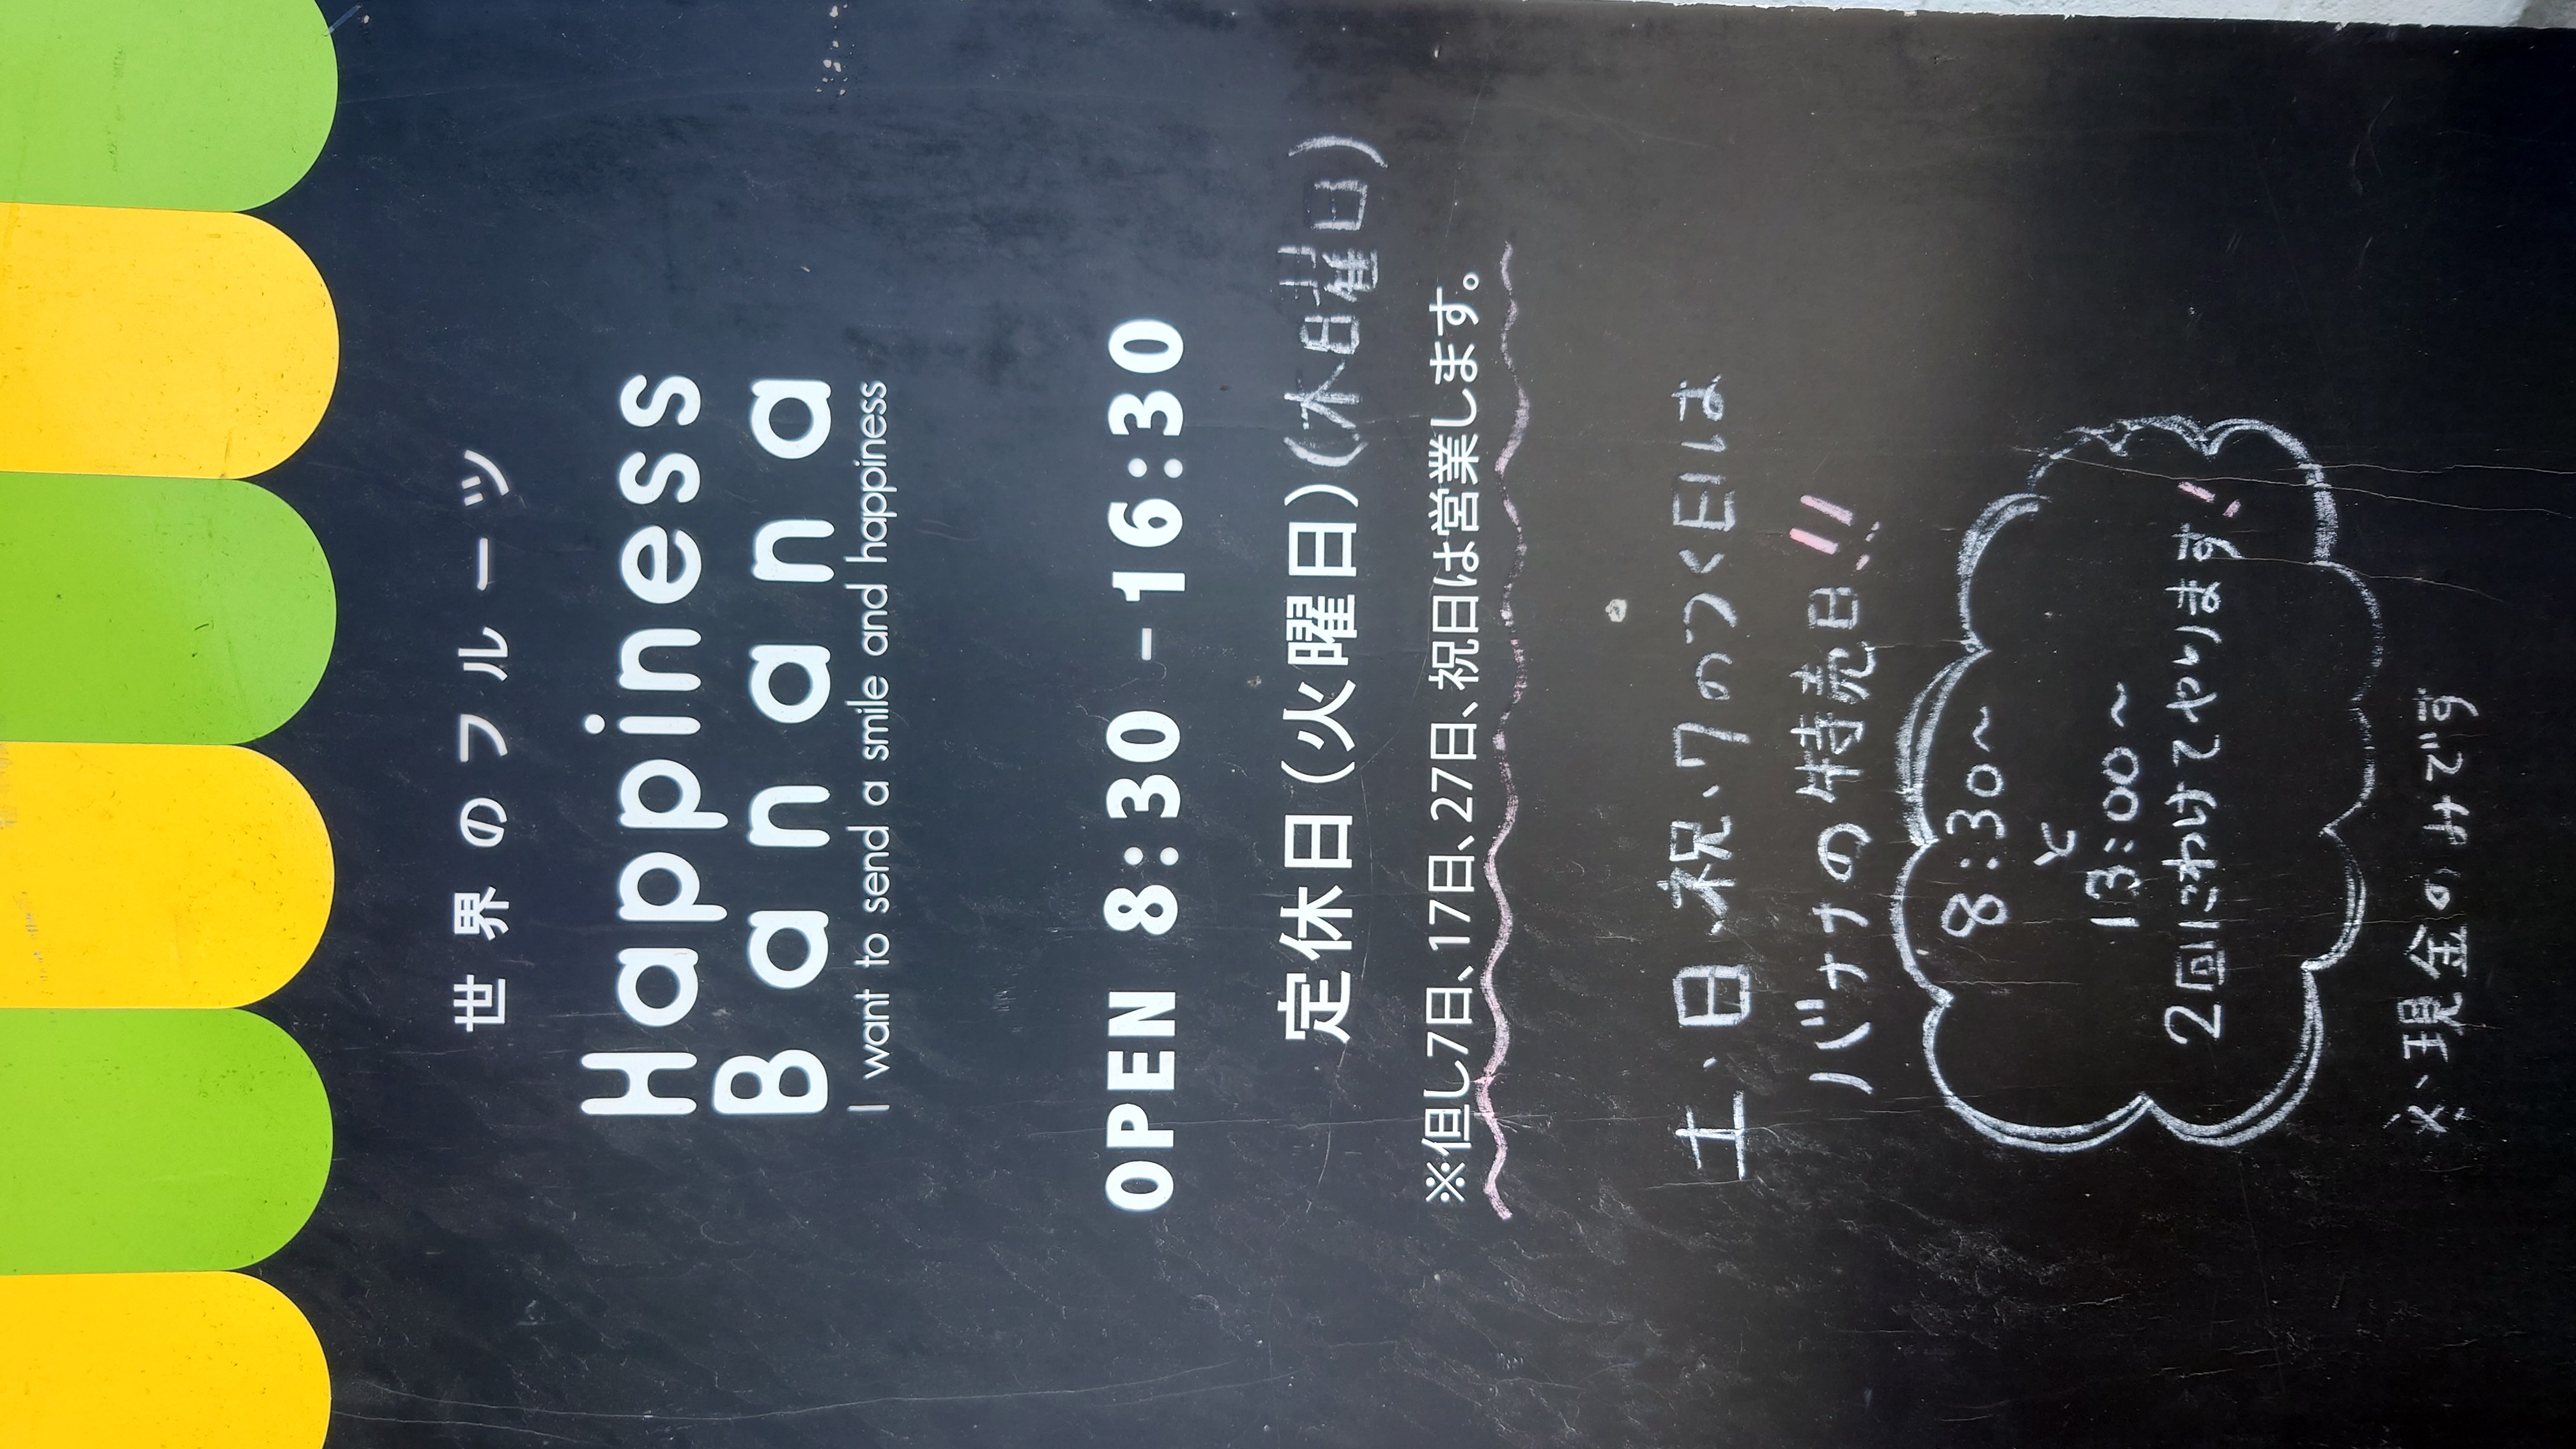 世界のフルーツ
Happiness
Banana
I want to send a smile and happiness
OPEN 8:30-16:30
定休日(火曜日)(木曜日)
※但し7日、17日、27日、祝日は営業します。
土、日、祝、7のつく日は
バナナの特売日!!
8:30〜
と
13:00〜
2回にわけてやります!
※現金のみです